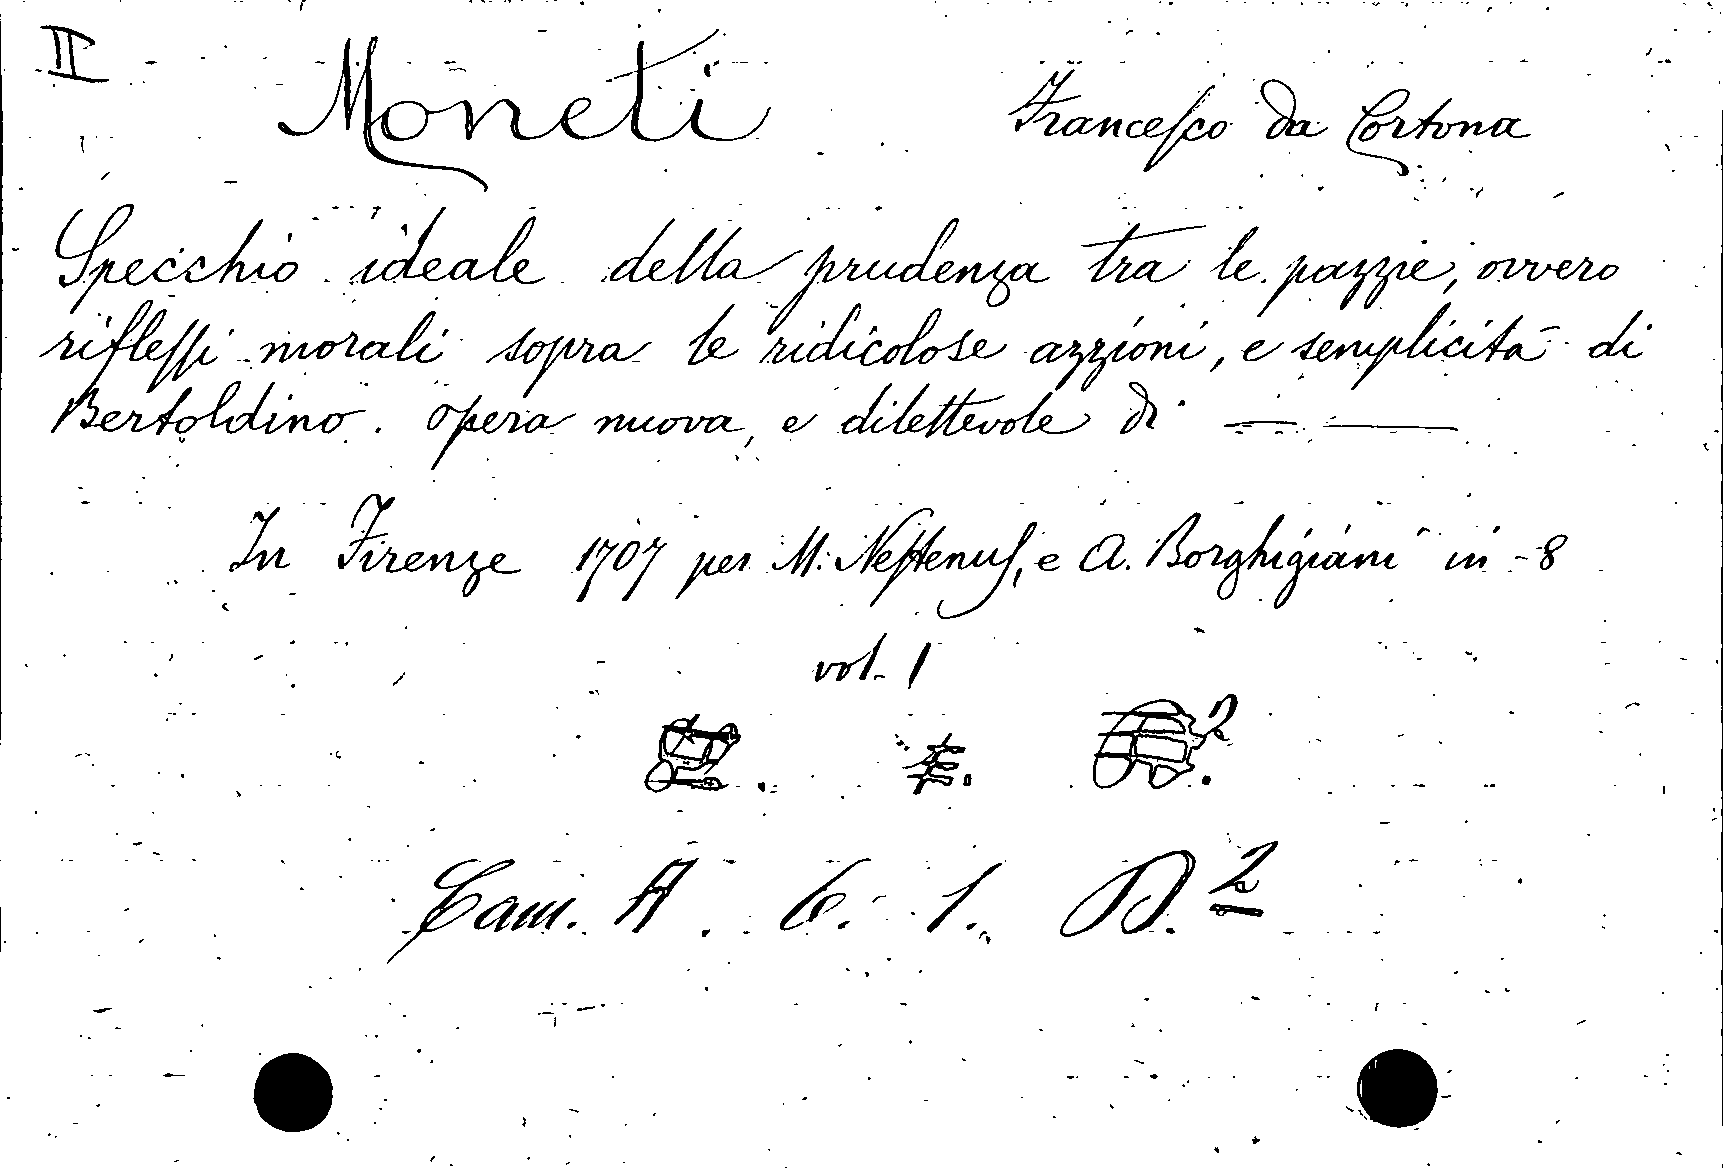 II
Moneti Francesco da Cortona
Specchio ideale della prudenza tra le pazzie, ovvero
riflessi morali sopra le ridicolose azzioni, e semplicità di
Bertoldino. Opera nuova, e dilettevole di — —
In Firenze 1707 per M. Nestenus, e A. Borghigiani in-8
vol. 1
Cam. A. 6. 1. D.2